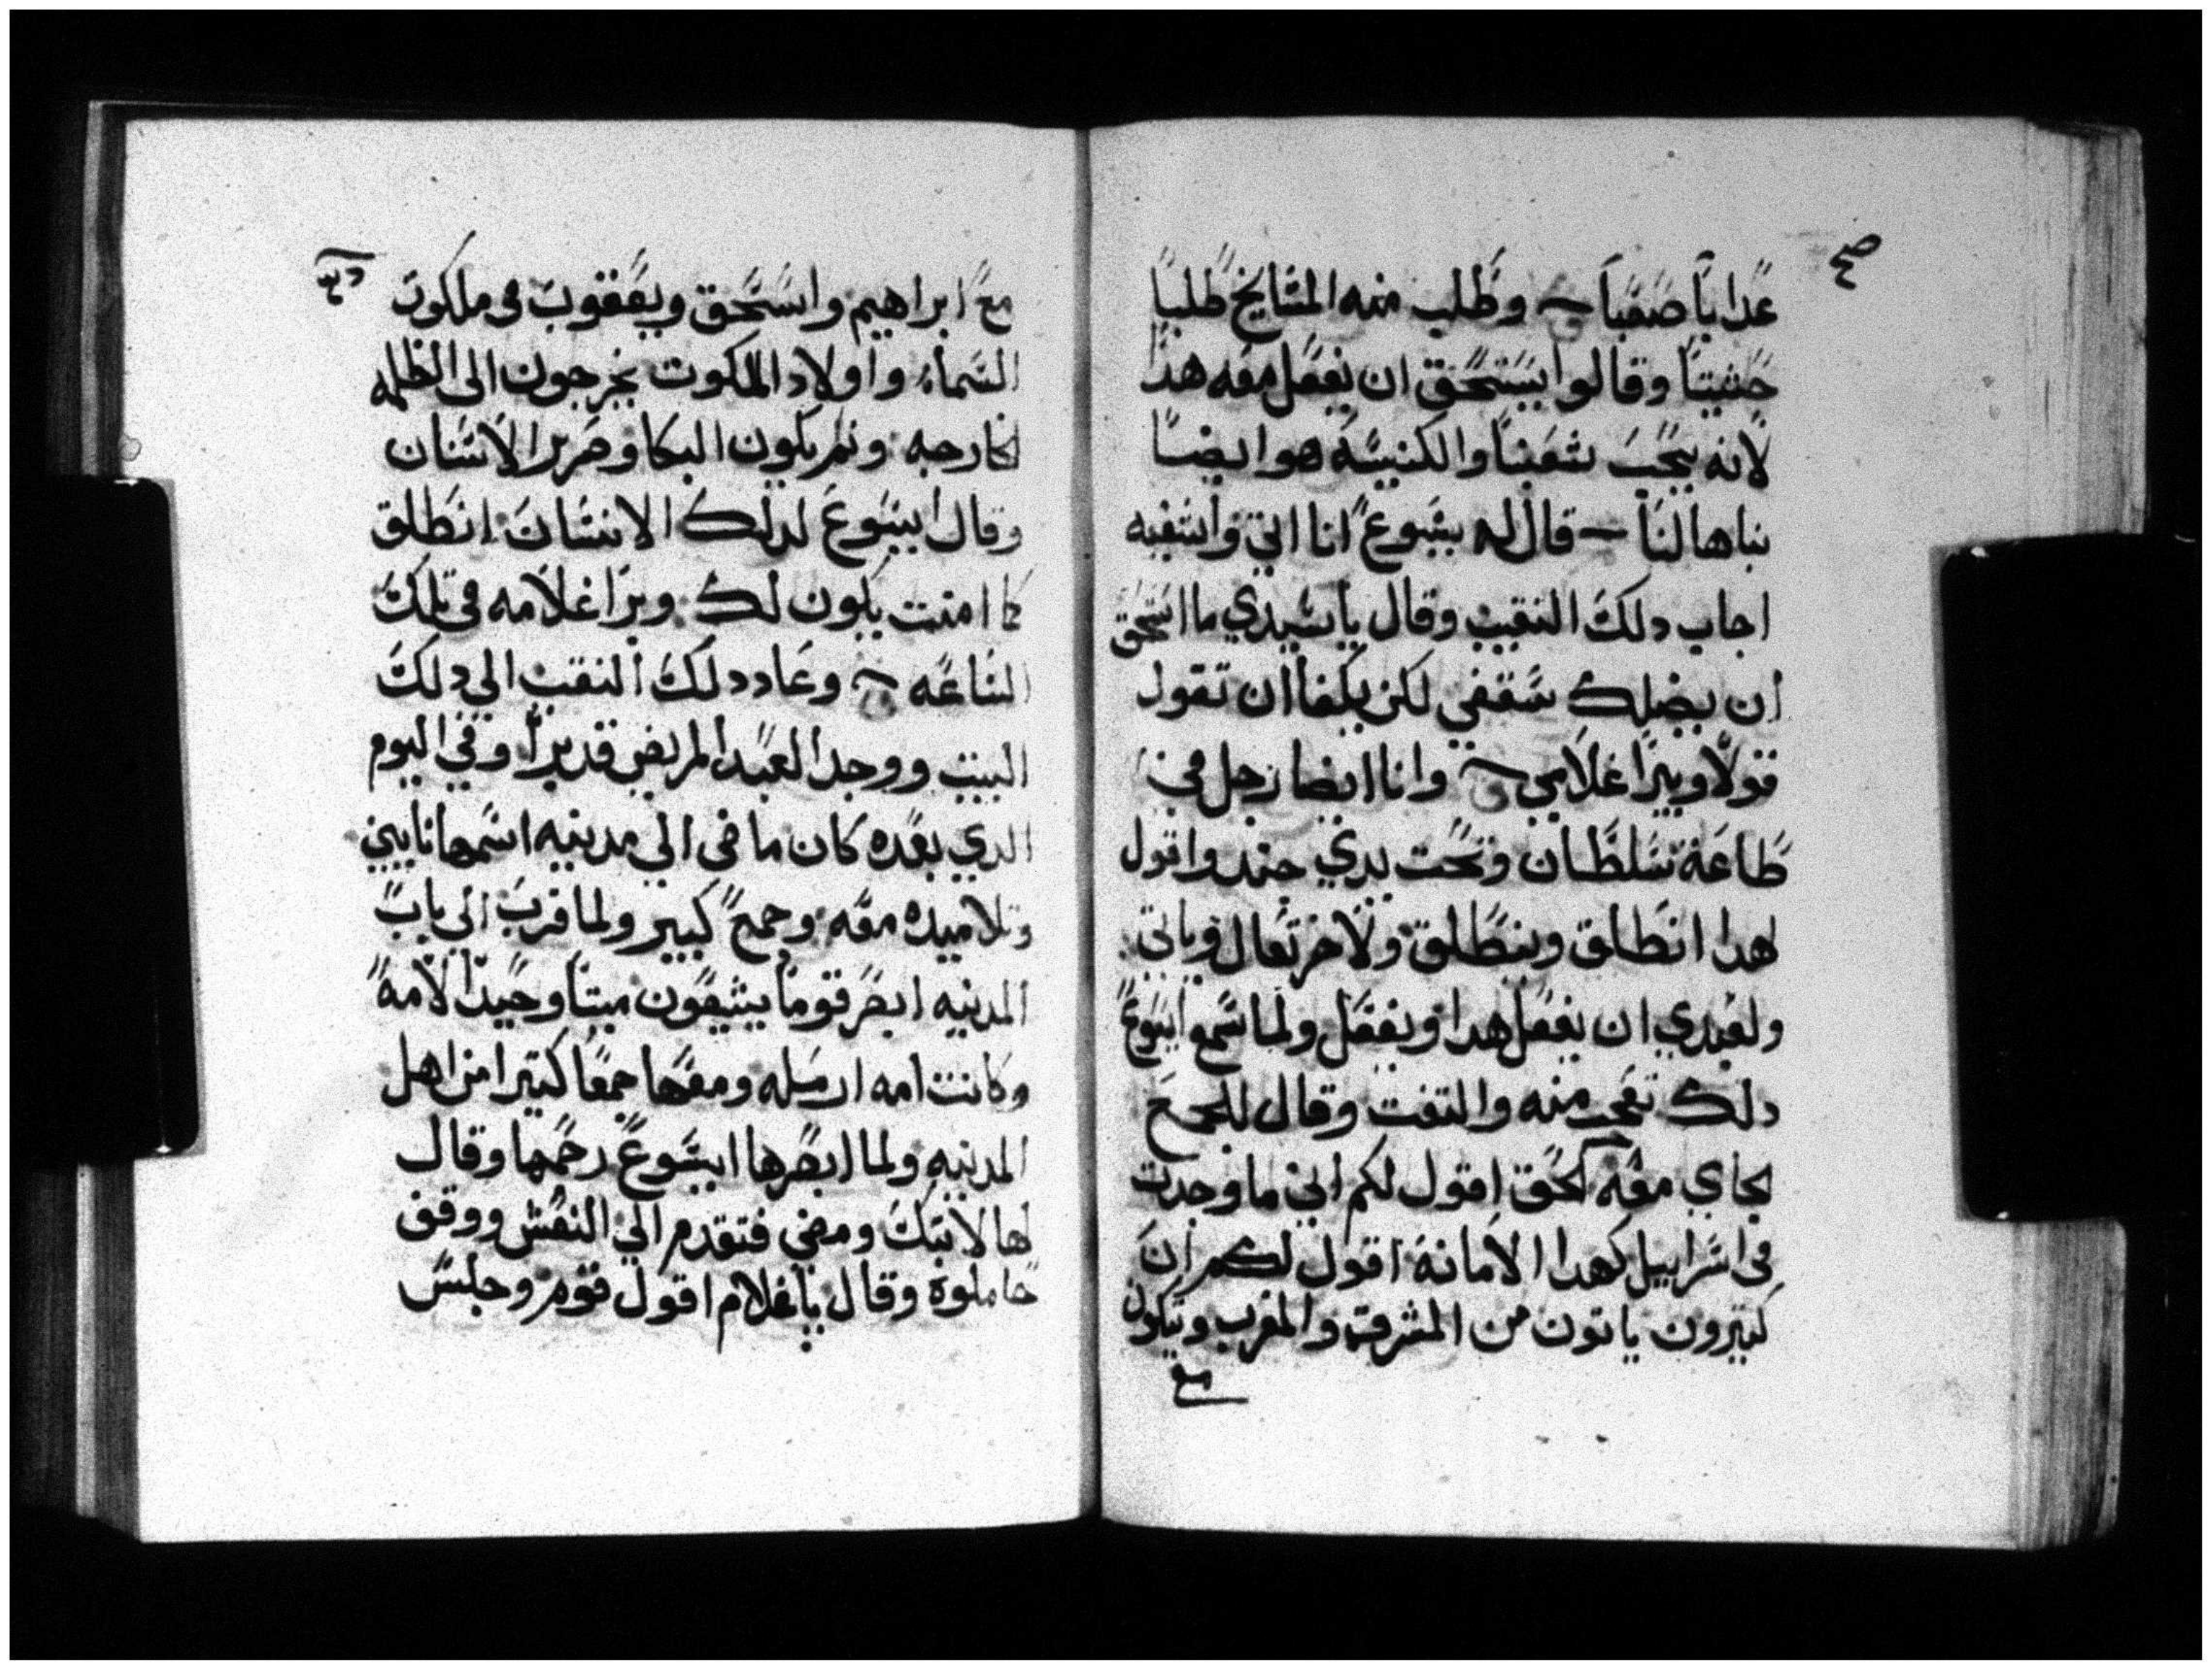 عدابا صعبا وطلب منه المشايخ طلبا
حثيثا وقالوا يستحق ان يفعل معه هدا
لانه يحب شعبنا والكنيسة هو ايضا
بناها لنا قال له يشوع انا اتي واشفيه
اجاب دلك النقيب وقال يا سيدي ما استحق
ان يضلك سقفي لكن يكفا ان تقول
قولا ويبرا غلامي وانا ايضا رجل في
طاعة سلطان وتحت يدي جند واقول
لهدا انطلق وينطلق ولاخر تعال وياتي
ولعبدي ان يفعل هدا ويفعل ولما سمع ايسوع
دلك تعجب منه والتفت وقال للجمع
الجاي معه الحق اقول لكم اني ما وجدت
في اسراييل كهدا الامانة اقول لكم ان
كتيرون ياتون من المشرق والمغرب ويتكون
مع
مع ابراهيم واسحق ويعقوب في ملكوت
السماء واولاد الملكوت يخرجون الى الظلمه
الخارجيه وثم يكون البكا وصرير الاسنان
وقال ايسوع لدلك الانسان انطلق
كما امنت يكون لك وبرا غلامه في تلك
الساعه وعاد دلك النقيب الى دلك
البيت ووجد العبد المريض قد برا وفي اليوم
الدي بعده كان ماضى الي مدينه اسمها نايين
وتلاميده معه وجمع كبير ولما قرب الى باب
المدينه ابصر قوما يشيعون ميتا وحيدا لامه
وكانت امه ارمله ومعها جمعا كتيرا من اهل
المدينه ولما ابصرها ايسوع رحمها وقال
لها لا تبك ومضي فتقدم الي النعش ووقف
حاملوه وقال يا غلام اقول قوم وجلس